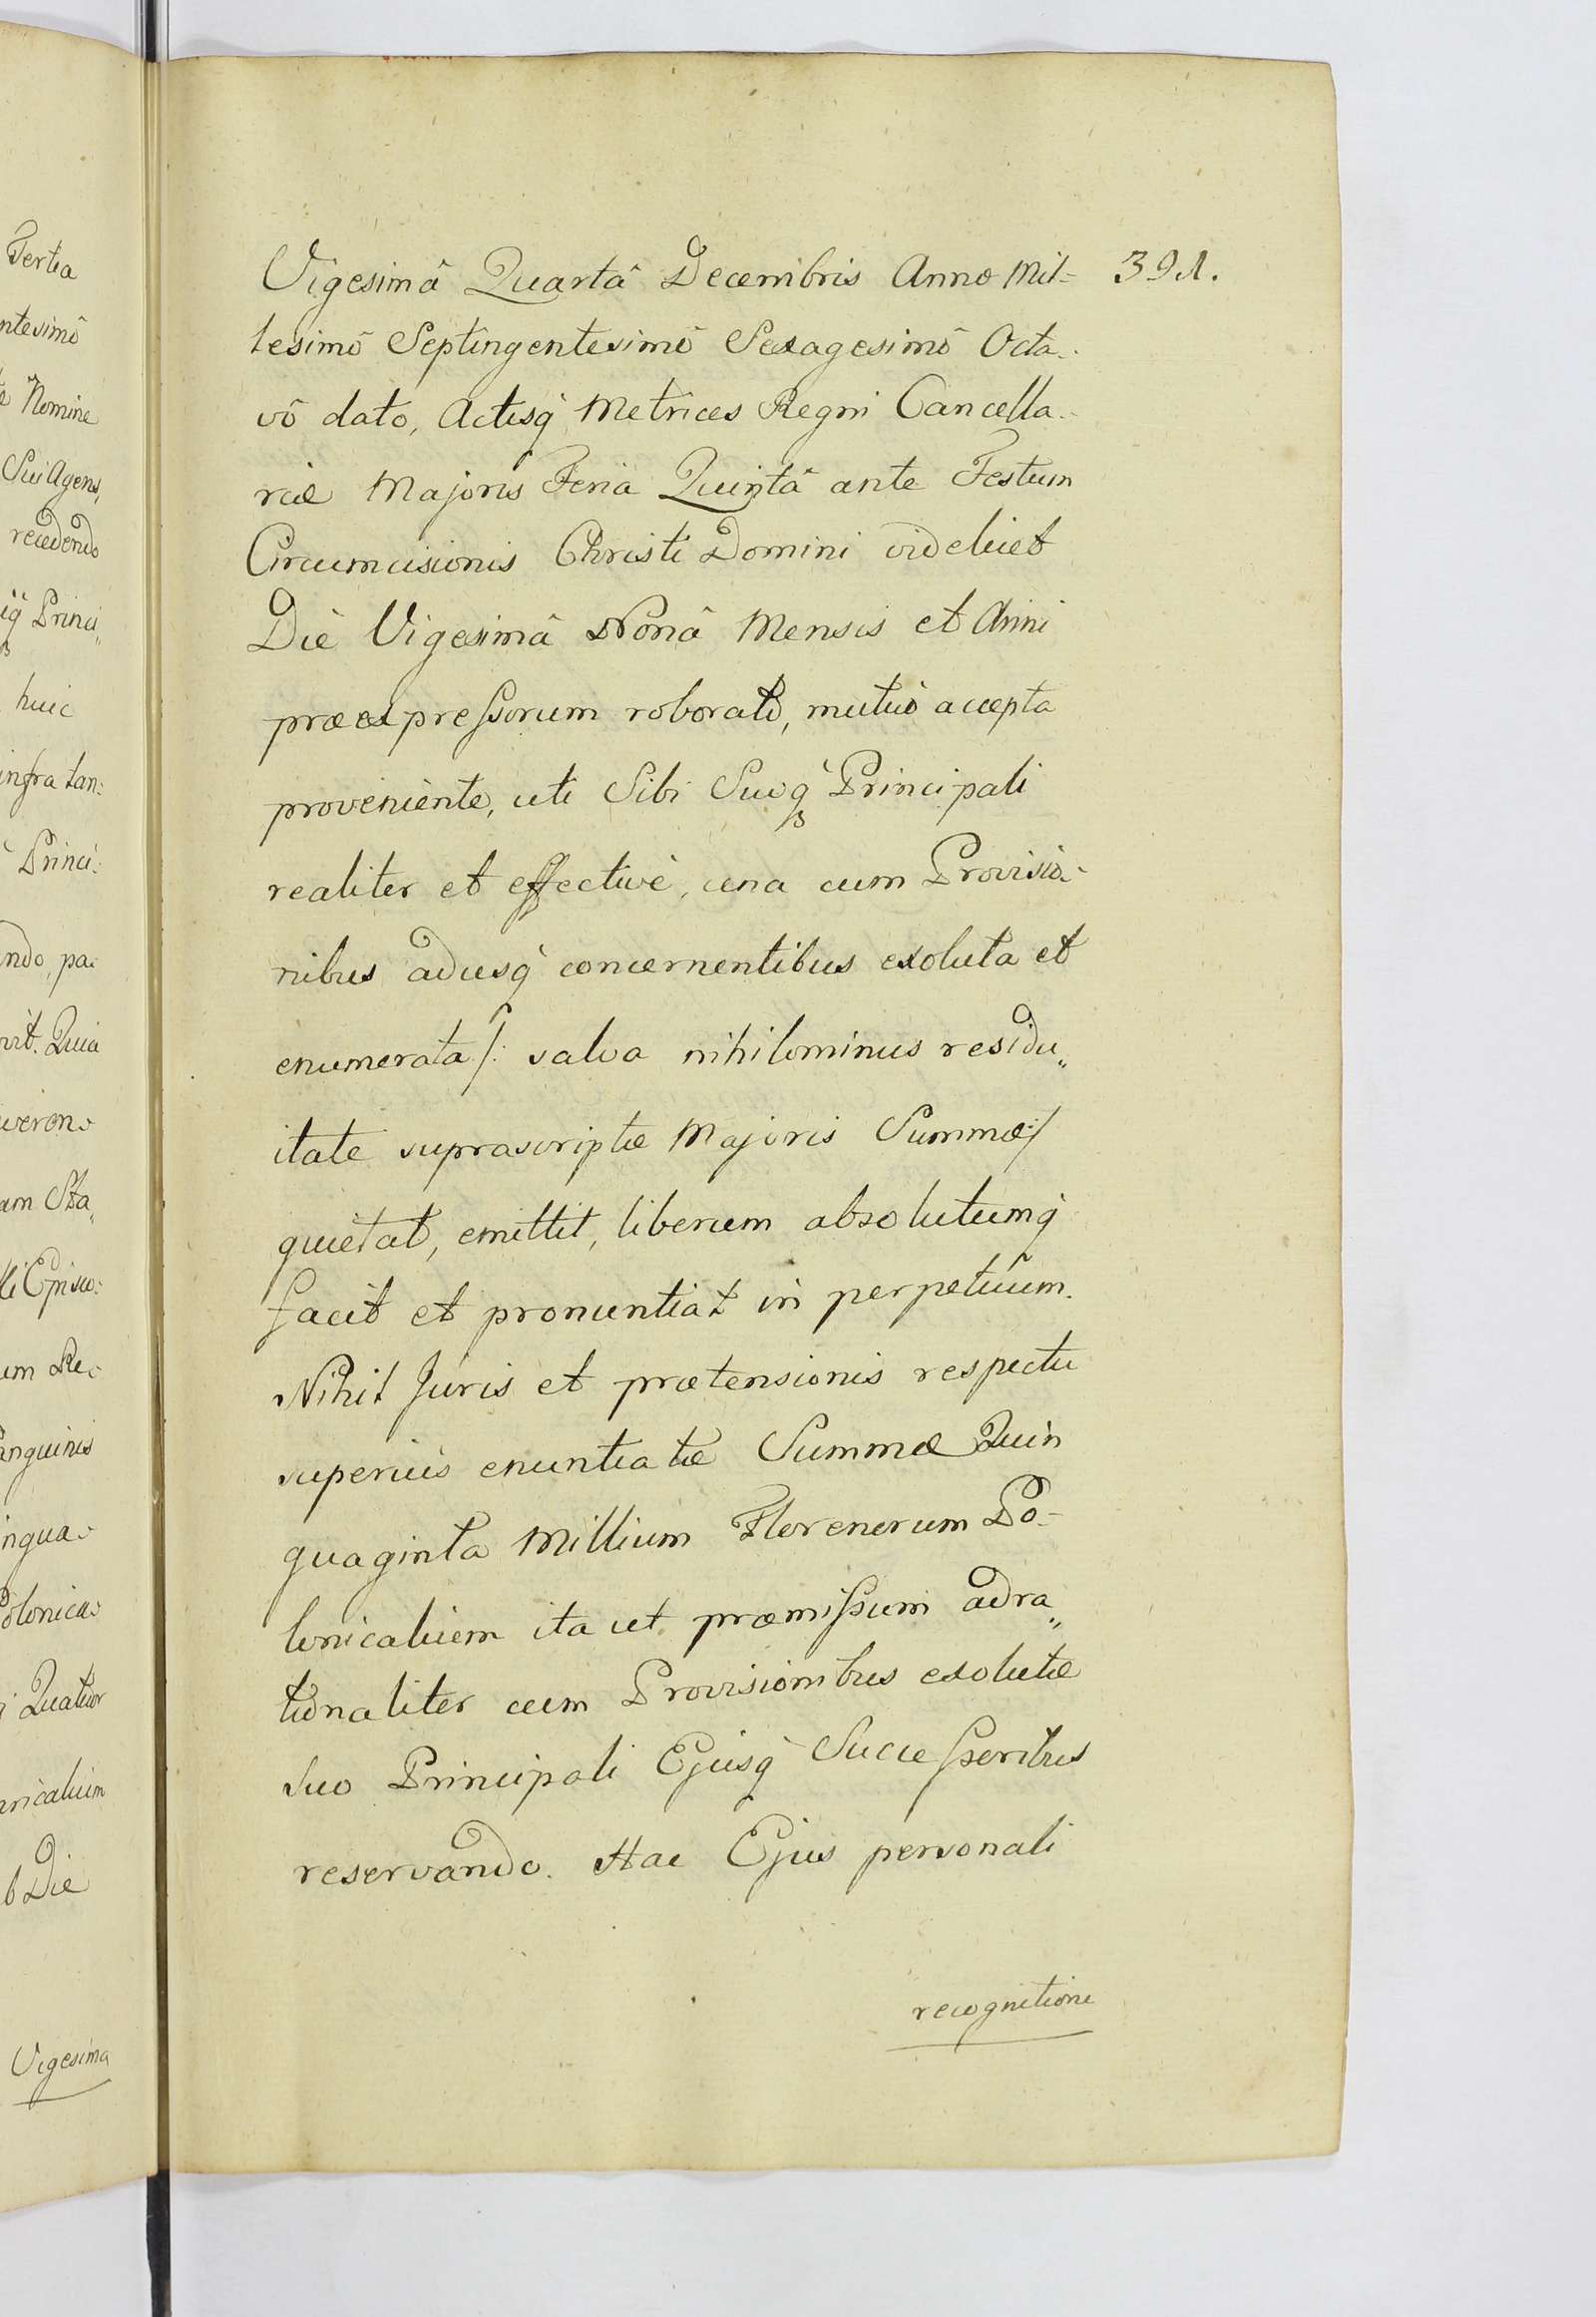 Tertia
ntesimô
Nomine
Sui Agens,
recedendo
Princi„
huic
infra tan:
Princi:
ndo, pa:
vit. Quia
veren:
am Sta„
li Episco:
um Re:
anguinis
ingua:
Polonica:
Quatuor
nicalium
Die
Vigesima
391.
Vigesimâ Quartâ Decembris Anno Mil=
lesimô Septingentesimô Sexagesimô Octa=
vô dato, Actisq̀ Metrices Regni Cancella=
riæ Majoris Feria Quintâ ante Festum
Circumcisionis Christi Domini videlicet
Diè Vigesimâ Nonâ Mensis et Anni
præexpressorum roborato, mutuò accepta
proveniente, uti Sibi Suoq̀ Principali
realiter et effectivè, una cum Provisio=
nibus adusq̀ concernentibus exoluta et
enumerata /: salva nihilominus residu„
itate suprascriptæ Majoris Summæ :/
quietat, emittit, liberum absolutumq̀
facit et pronuntiat in perpetuum.
Nihil Juris et prætensionis respectu
superius enuntiatæ Summæ Quin
quaginta Millium Florenorum Po=
lonicalium ita ut præmissum adra„
tionaliter cum Provisionibus exolutæ
suo Principali Ejusq̀ Successoribus
reservando. Hac Ejus personali
recognitione